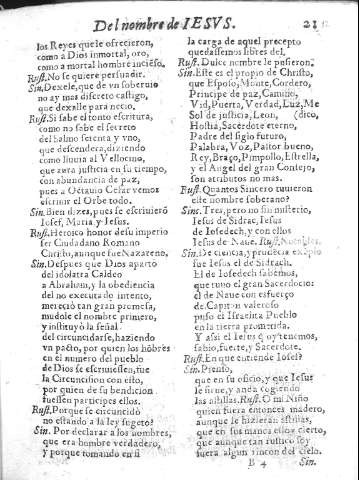 Del nombre de IESVS. 21
los Reyes que le ofrecieron,
como à Dios inmortal, oro,
como a mortal hombre incienso.
Rust. No se quiere persuadir.
Sin. Dexele, que de vn soberuio
no ay mas discreto castigo,
que dexalle para necio.
Rust. Si sabe el tonto escritura,
como no sabe el secreto
del salmo setenta y vno,
que descendera, diziendo
como lluuia al Vellocino,
que aura justicia en su tiempo,
con abundancia de paz,
pues a Octauio Cesar vemos
escriuir el Orbe todo.
Sin. Bien dizes, pues se escriuierõ
Iosef, Maria y Iesus.
Rust. Heroico honor desu imperio
ser Ciudadano Romano
Christo, aunque fue Nazareno.
Sin. Despues que Dios aparto
del idolatra Caldeo
a Abraham, y la obediencia
del no executado intento,
merecio tan gran promesa,
mudole el nombre primero,
y instituyò la señal
del circuncidarse, haziendo
vn pacto, por quien los hõbres
en el numero del pueblo
de Dios se escriuiessen, fue
la Circuncision con esto,
por quien de su bendicion
fuessen participes ellos.
Rust. Porque se circuncidò
no estando a la ley sugeto?
Sin. Por declarar a los hombres,
que era hombre verdadero,
y porque tomando en si
la carga de aquel precepto
quedassemos libres del.
Rust. Dulce nombre le pusieron.
Sin. Este es el propio de Christo,
que Esposo, Monte, Cordero,
Principe de paz, Camino,
Vid, Puerta, Verdad, Luz, Me
Sol de justicia, Leon, (dico,
Hostia, Sacerdote eterno,
Padre del siglo futuro,
Palabra, Voz, Pastor bueno,
Rey, Braço, Pimpollo, Estrella,
y el Angel del gran Consejo,
son atributos no mas.
Rust. Quantos Sincero tuuieron
este nombre soberano?
Sin. Tres, pero no sin misterio,
Iesus de Sidrac, Iesus
de Iosedech, y con ellos
Iesus de Naue. Rust. Notables.
Sin. De ciencia, y prudẽcia exẽplo
fue Iesus el de Sidrach.
El de Iosedech sabemos,
que tuuo el gran Sacerdocio:
el de Naue con esfuerço
de Capitan valeroso
puso el Israelita Pueblo
en la tierra prometida.
Y assi el Iesus q̃ oy tenemos,
sabio, fuerte, y Sacerdote.
Rust. En que entiende Iosef?
Sin. Pienso,
que en su oficio, y que Iesus
le sirue, y anda cogiendo
las astillas. Rust. O mi Niño
quien fuera entonces madero,
aunque le hizieran astillas,
que en sus manos ellos cierto,
que aunque tan rustico soy
fuera algun rincon del cielo.
B 4 Sin.